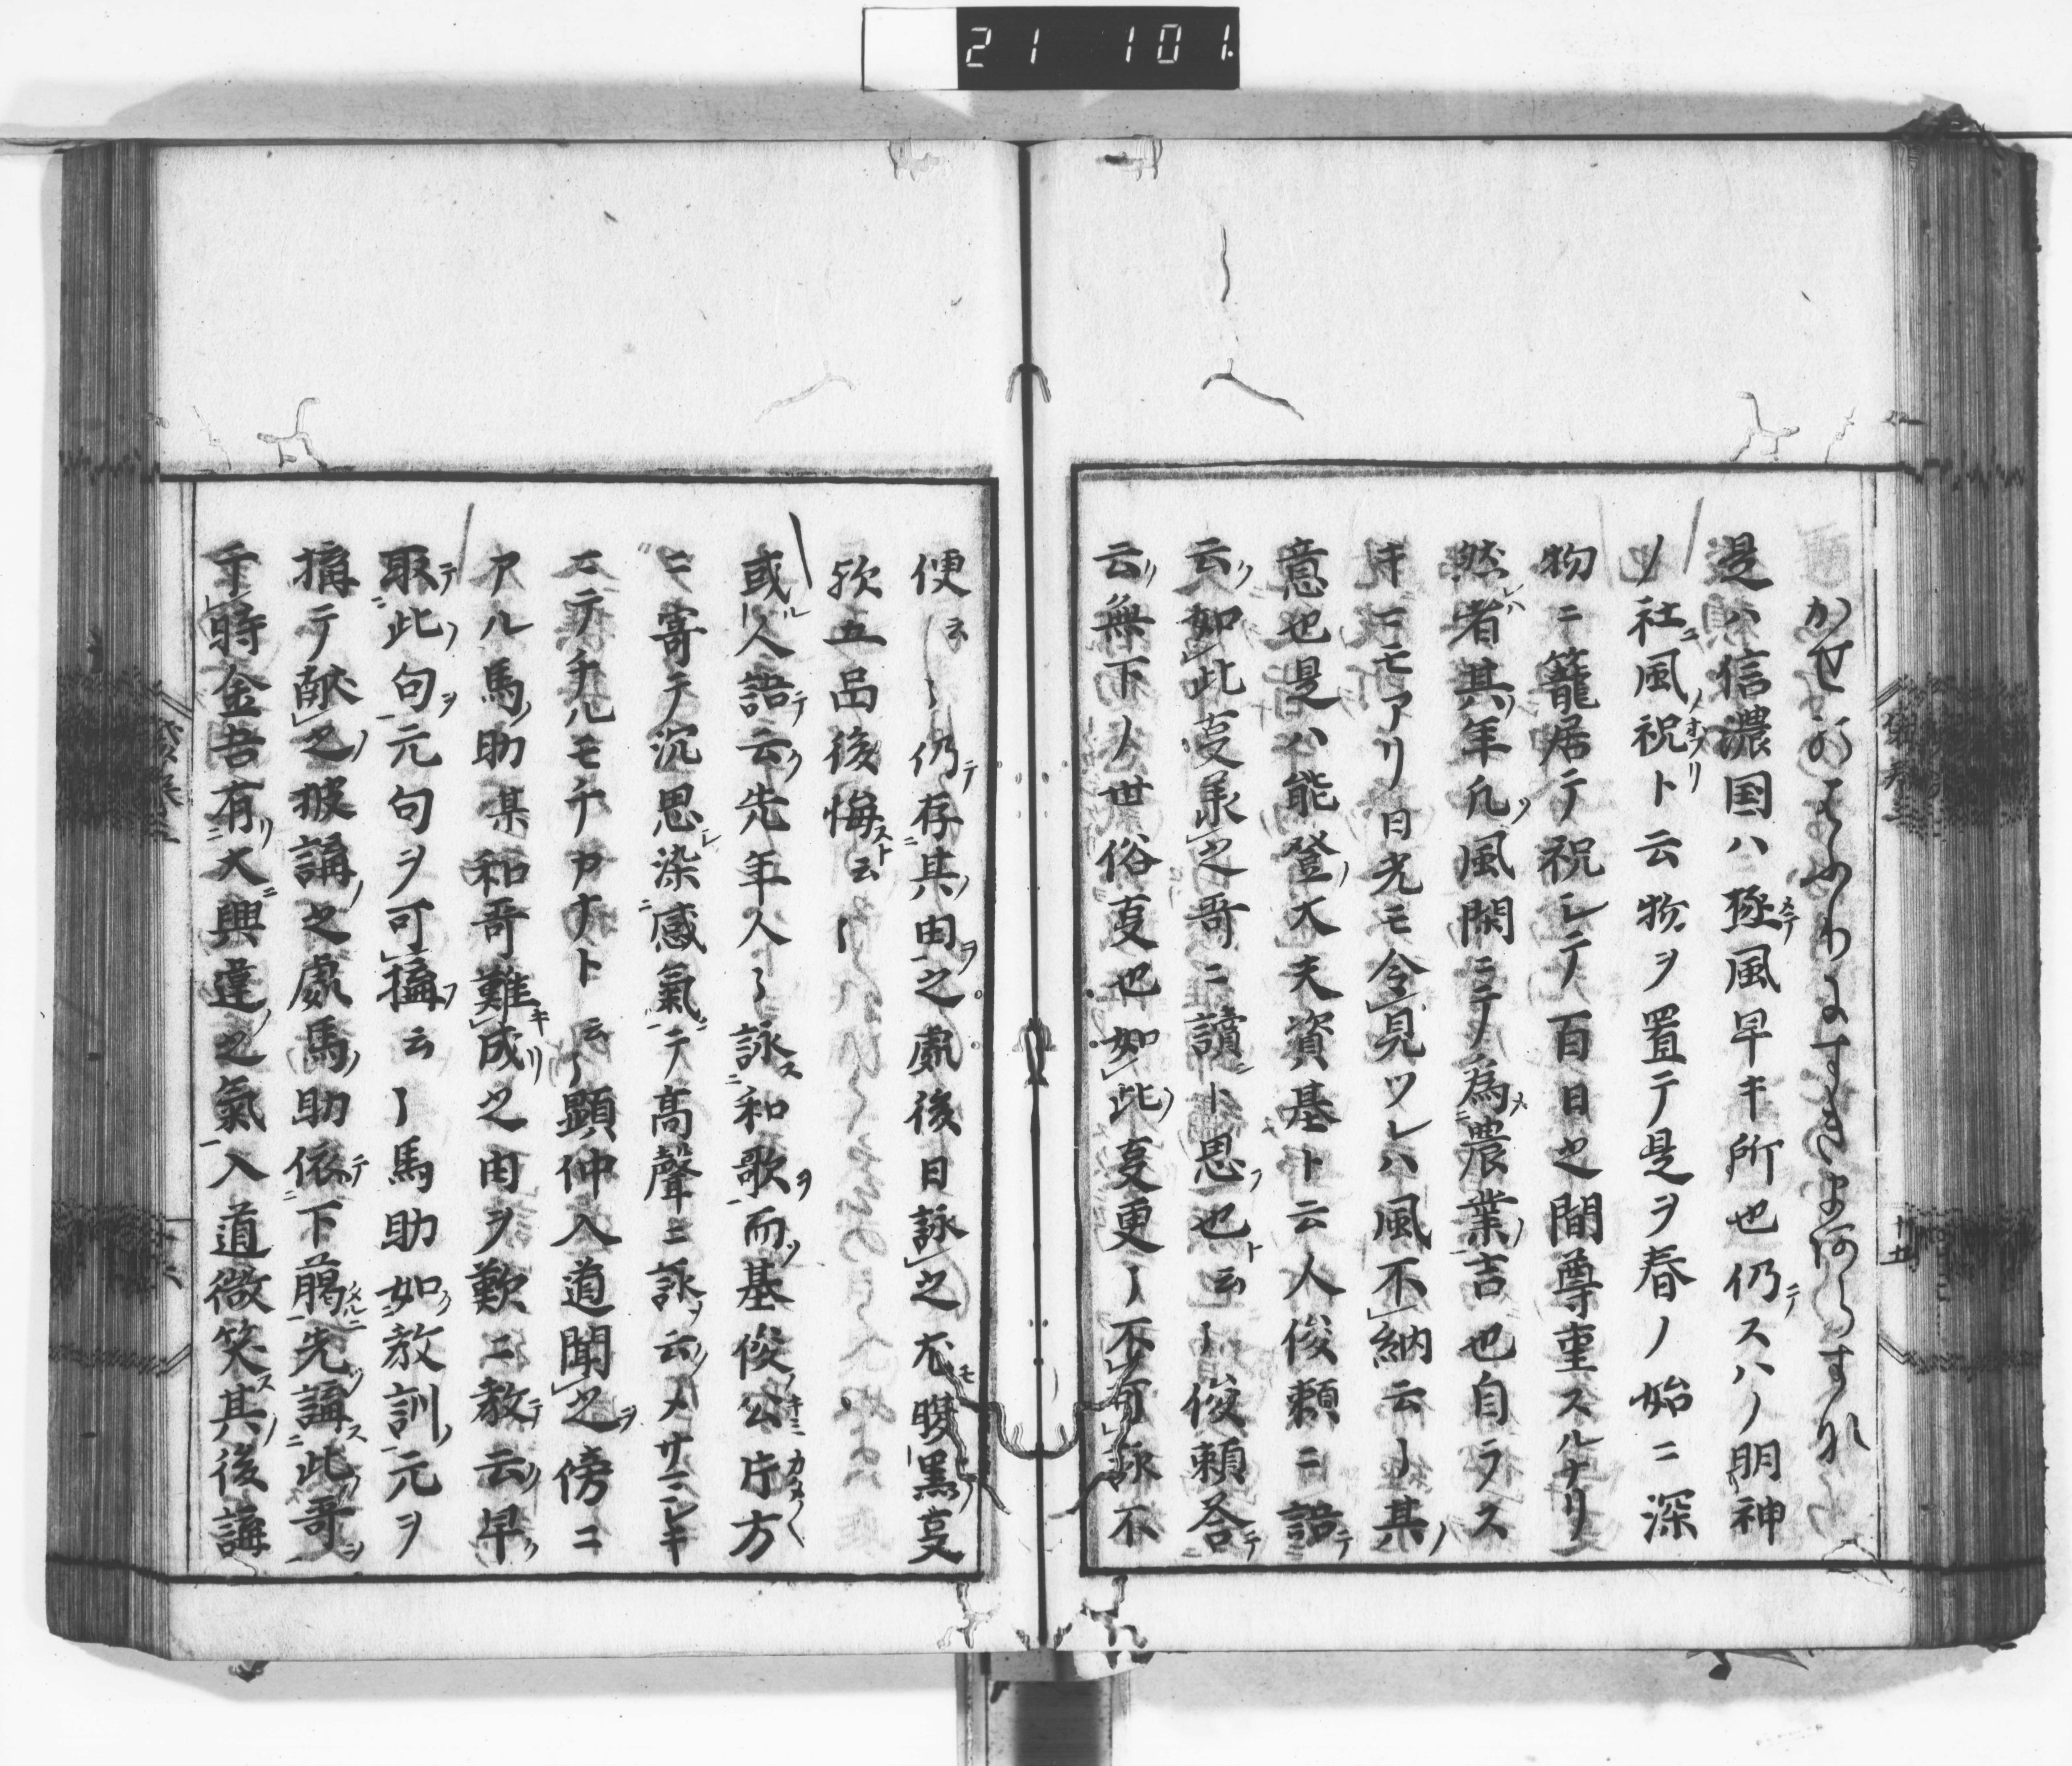 21 101
かせのはふりにすきまあらすな
是ハ信濃国ハ極風早キ所也仍テスハノ明神
ノ社ニ風祝ト云物ヲ置テ是ヲ春ノ始ニ深
物ニ籠居テ祝シテ百日之間尊重スルナリ
然者其年凡風閑ニテ為農業吉也自ラス
キマモアリ日光モ令見ツレハ風不納云々其
意也是ハ能登大夫資基ト云人俊頼ニ語テ
云ク如此事承之哥ニ讀ント思フ也ト云々俊頼答テ
云無下ノ世俗事也如此事更々不可詠不
便云々仍テ存其由之處後日詠之尤腹黒事
歟五品後悔スト云々
或人語テ云ク先年人々詠和歌而基俊公片方
ニ寄テ沉思染感氣ニテ高聲ニ詠云メサマシキ
マテチルモチカナト云々顕仲入道聞之ヲ傍ニ
アル馬助某和哥難成之由ヲ歎ニ教テ云早
取テ此句ヲ元句ヲ可搆云々馬助如教訓元ヲ
搆テ献之披講之處馬助依下臈先講此哥
于時金吾有大興違之氣入道微笑其後講